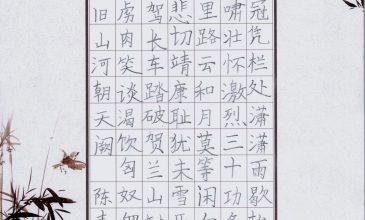 冠凭栏处潇潇雨歇
啸壮怀激烈三十功
里路云和月莫等闲
悲切靖康耻犹未雪
驾长车踏破贺兰山
虏肉笑谈渴饮匈奴
旧山河朝天阙 陈